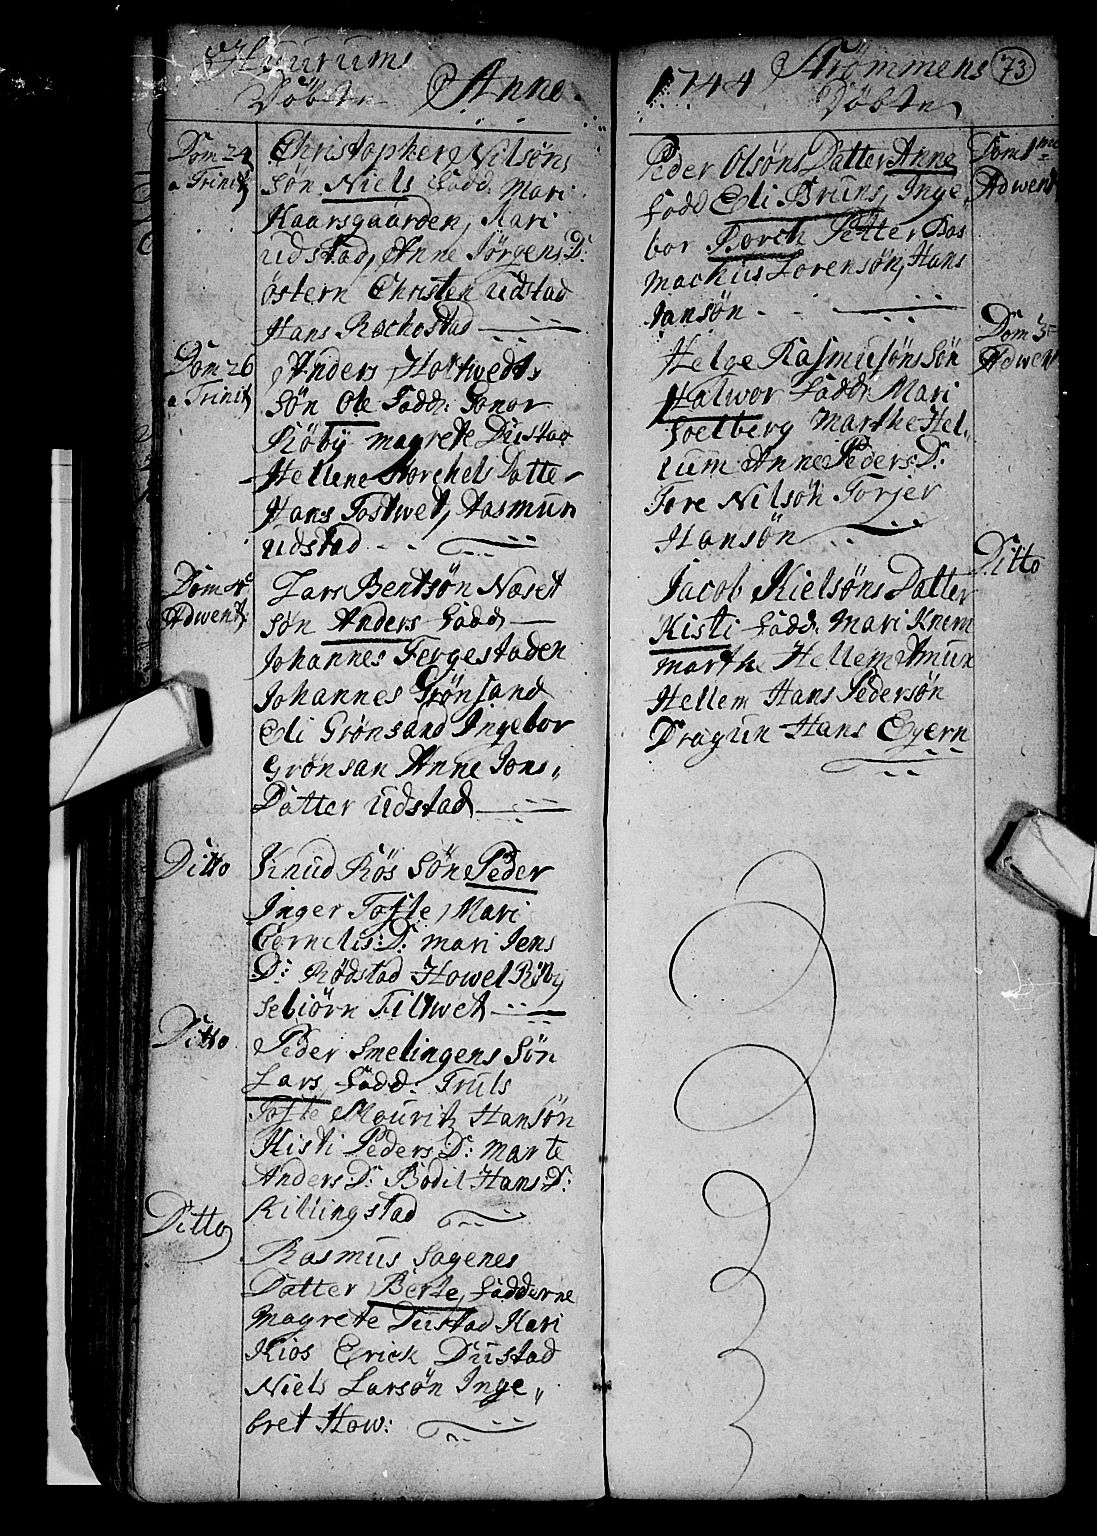 Huurums
Döbte Anno
Dom 24
a Trinit
Christopher Nilsöns
Sön Niels Fadd. Mari
Haarsgaarden, Kari
Udstad, Anne Jörgens D:
östern Christen Udstad
Hans Rackestad
Dom 26
a Trinit
Anders Holtwedts
Sön Ole Fadd: Gonor
Röby magrete Dustad
Hellene Torchels Datte
Hans Tostwet, Aasmun
Udstad
Dom 4
Adwent
Lars Bentsön Næset
Sön Anders Fadd
Johannes Fergestaden
Johannes Grönsand
Eli Grönsand Ingebor
Grönsan Anne Jons„
Datter Udstad
Ditto
Knud Rös Sön Peder
Inger Tofte, Mari
Cornelis: D: mari Jens
D: Rödstad Howel Röby
Sebiörn Filtwet
Ditto
Peder Smelingens Sön
Lars Fadd: Truls
Tofte Mouritz Hansön
Kisti Peders D: marte
Anders: D: Bodil Hans: D:
Killingstad
Ditto
Rasmus Sagenes
Datter Berte, Fadderne
Magrete Dustad Kari
Kios Erick Dustad
Niels Larsön Inge„
bret How:
1744 Strömmens 73
Döbte
Dom 1me
Adwent
Peder Olsöns Datter Anne
Fadd Eli Bruns, Inge
bor Borch Petter Das
Machus Lorensön, Hans
Jansön
Dom 3
Adwent
Helge Rasmusöns Sön
Halwor Fadd. Mari
Soelberg Marthe Hel„
lum Anne Peders: D:
Tore Nilsön Torjer
Hansön
Ditto
Jacob Kielsöns Datter
Kisti Fadd. Mari Knem
marthe Hellem Amun
Hellem Hans Pedersön
Dragun Hans Egern